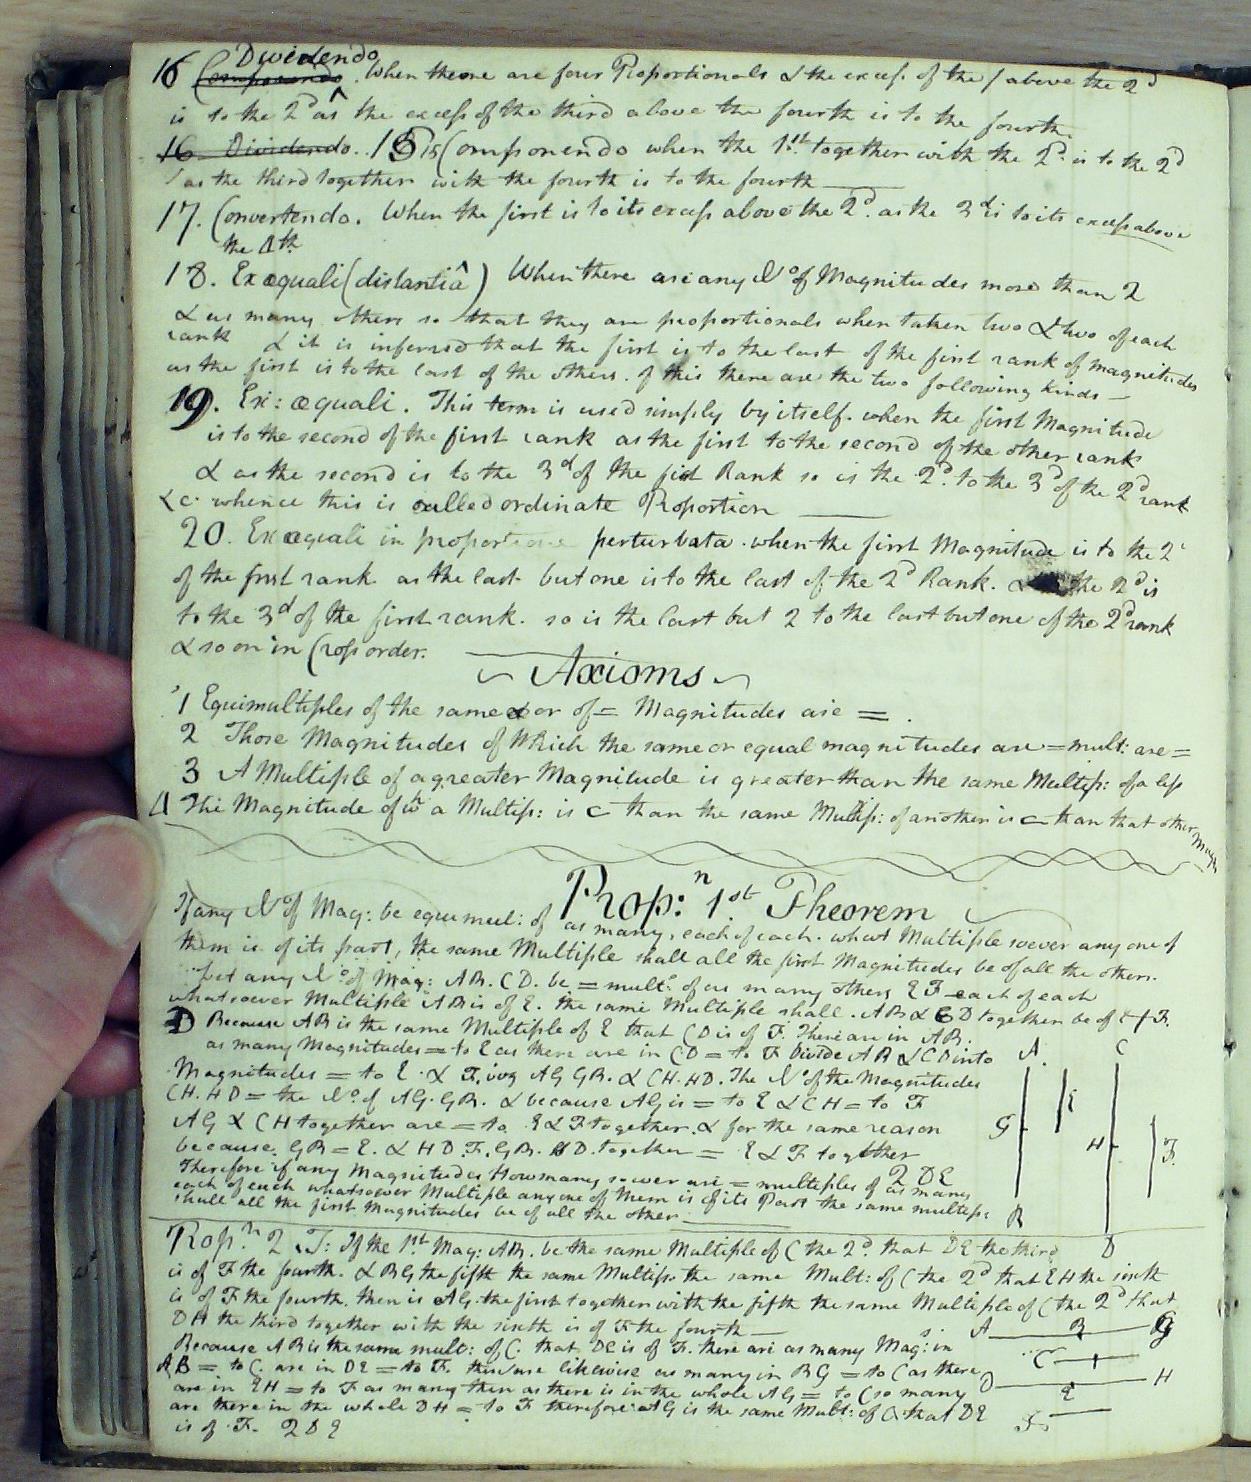 Dividendo
16 Componendo. When there are four Proportionals & the excess of the 1 above the 2d
is to the 2d as the excess of the third above the fourth is to the fourth.
16 Dividendo. 15 is Componendo when the 1st together with the 2d is to the 2d
as the third together with the fourth is to the fourth
17. Convertendo. When the first is to its excess above the 2d. as the 3d is to its excess above
the 4th
18. Ex æquali (distantiâ) When there are any No of Magnitudes more than 2
& as many others so that they are proportionals when taken two & two of each
rank & it is inferred that the first is to the last of the first rank of magnitudes
as the first is to the last of the others. of this there are the two following kinds
19. Ex: æquali. This term is used simply by itself. when the first Magnitude
is to the second of the first rank as the first to the second of the other rank
& as the second is to the 3d of the first Rank so is the 2d. to the 3d of the 2d rank
&c. whence this is called ordinate Proportion
20. Ex æquali in proportione perturbata. when the first Magnitude is to the 2
of the first rank as the last but one is to the last of the 2d Rank. & the 2d is
to the 3d of the first rank. so is the last but 2 to the last but one of the 2d rank
& so on in Cross order.
Axioms
1 Equimultiples of the same or of = Magnitudes are = .
2 Those Magnitudes of Which the same or equal magnitudes are = mult: are =
3 A Multiple of a greater Magnitude is greater than the same Multip: of a less
4 The Magnitude of wh a Multip: is ⊏ than the same Multip: of another is ⊏ than that other Mag
Prop:n 1.st Theorem
If any No of Mag: be equimul: of as many, each of each. what Multiple soever any one of
them is of its part, the same Multiple shall all the first Magnitudes be of all the others.
Let any No. of Mag: AB. CD. be = mult: of as many others E F each of each
whatsoever Multiple AB is of E. the same Multiple shall. AB & CD together be of E + F.
D Because AB is the same Multiple of E that CD is of F. There are in AB.
as many Magnitudes = to E as there are in CD = to F Divide AB & CD into
Magnitudes = to E. & F, viz AG GB. & CH. HD. The No of the Magnitudes
CH. HD = the No. of AG. GB. & because AG is = to E & CH = to F
AG & CH together are = to E & F together. & for the same reason
because. GB = E. & HD. F. GB. HD. together = E & F together
Therefore if any Magnitudes How many soever are = multiples of as many 2 DE
each of each whatsoever Multiple any one of them is of its Part the same multip:
shall all the first Magnitudes be of all the other
A. C
G E
H F.
B
D
Prop.n 2. T: If the 1st Mag: AB. be the same Multiple of C the 2d. that DE the third
is of F the fourth. & BG the fifth the same Multip. the same Mult: of C the 2d that EH the sixth
is of F the fourth. then is AG. the first together with the fifth the same Multiple of C the 2d that
DH the third together with the sixth is of F the fourth
Because AB is the same mult: of C. that DE is of F. there are as many Mag:s in
AB = to C. are in DE = to F. likewise as many in BG = to C as there
are in EH = to F as many then as there is in the whole AG = to C so many
are there in the whole DH = to F therefore AG is the same Mult: of C that DE
is of F. 2 DE
A B G
C
D E H
F